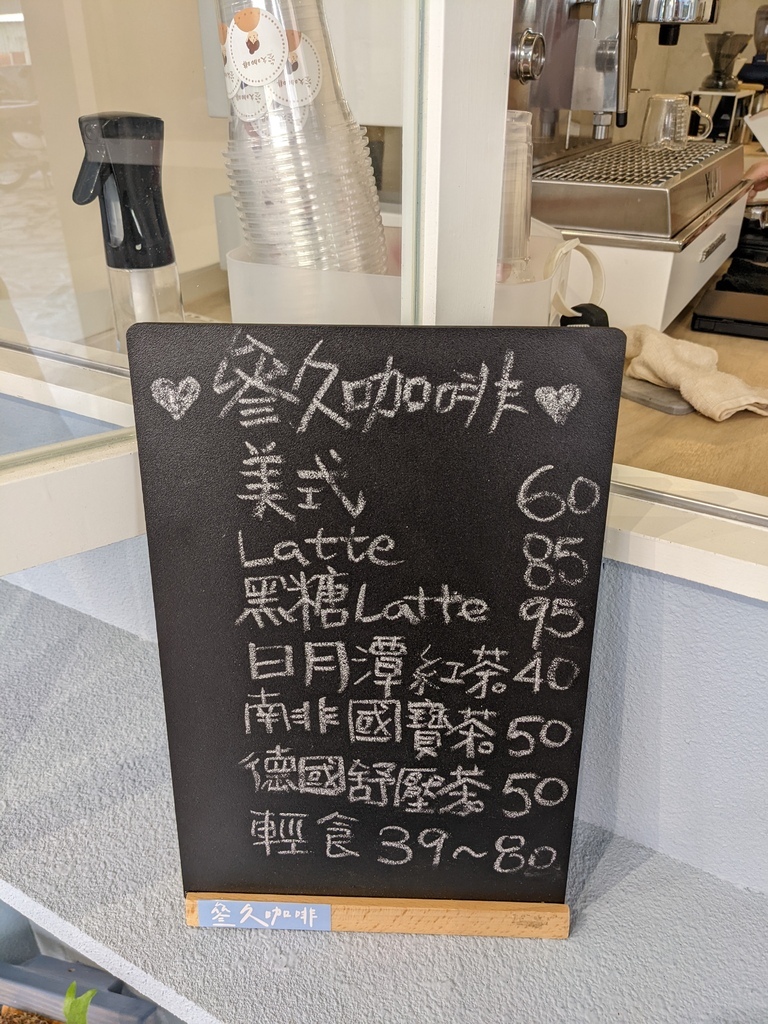 ♡叄久咖啡♡
美式 60
Latte 85
黑糖Latte 95
日月潭紅茶 40
南非國寶茶 50
德國舒壓茶 50
輕食 39~80
叄久咖啡